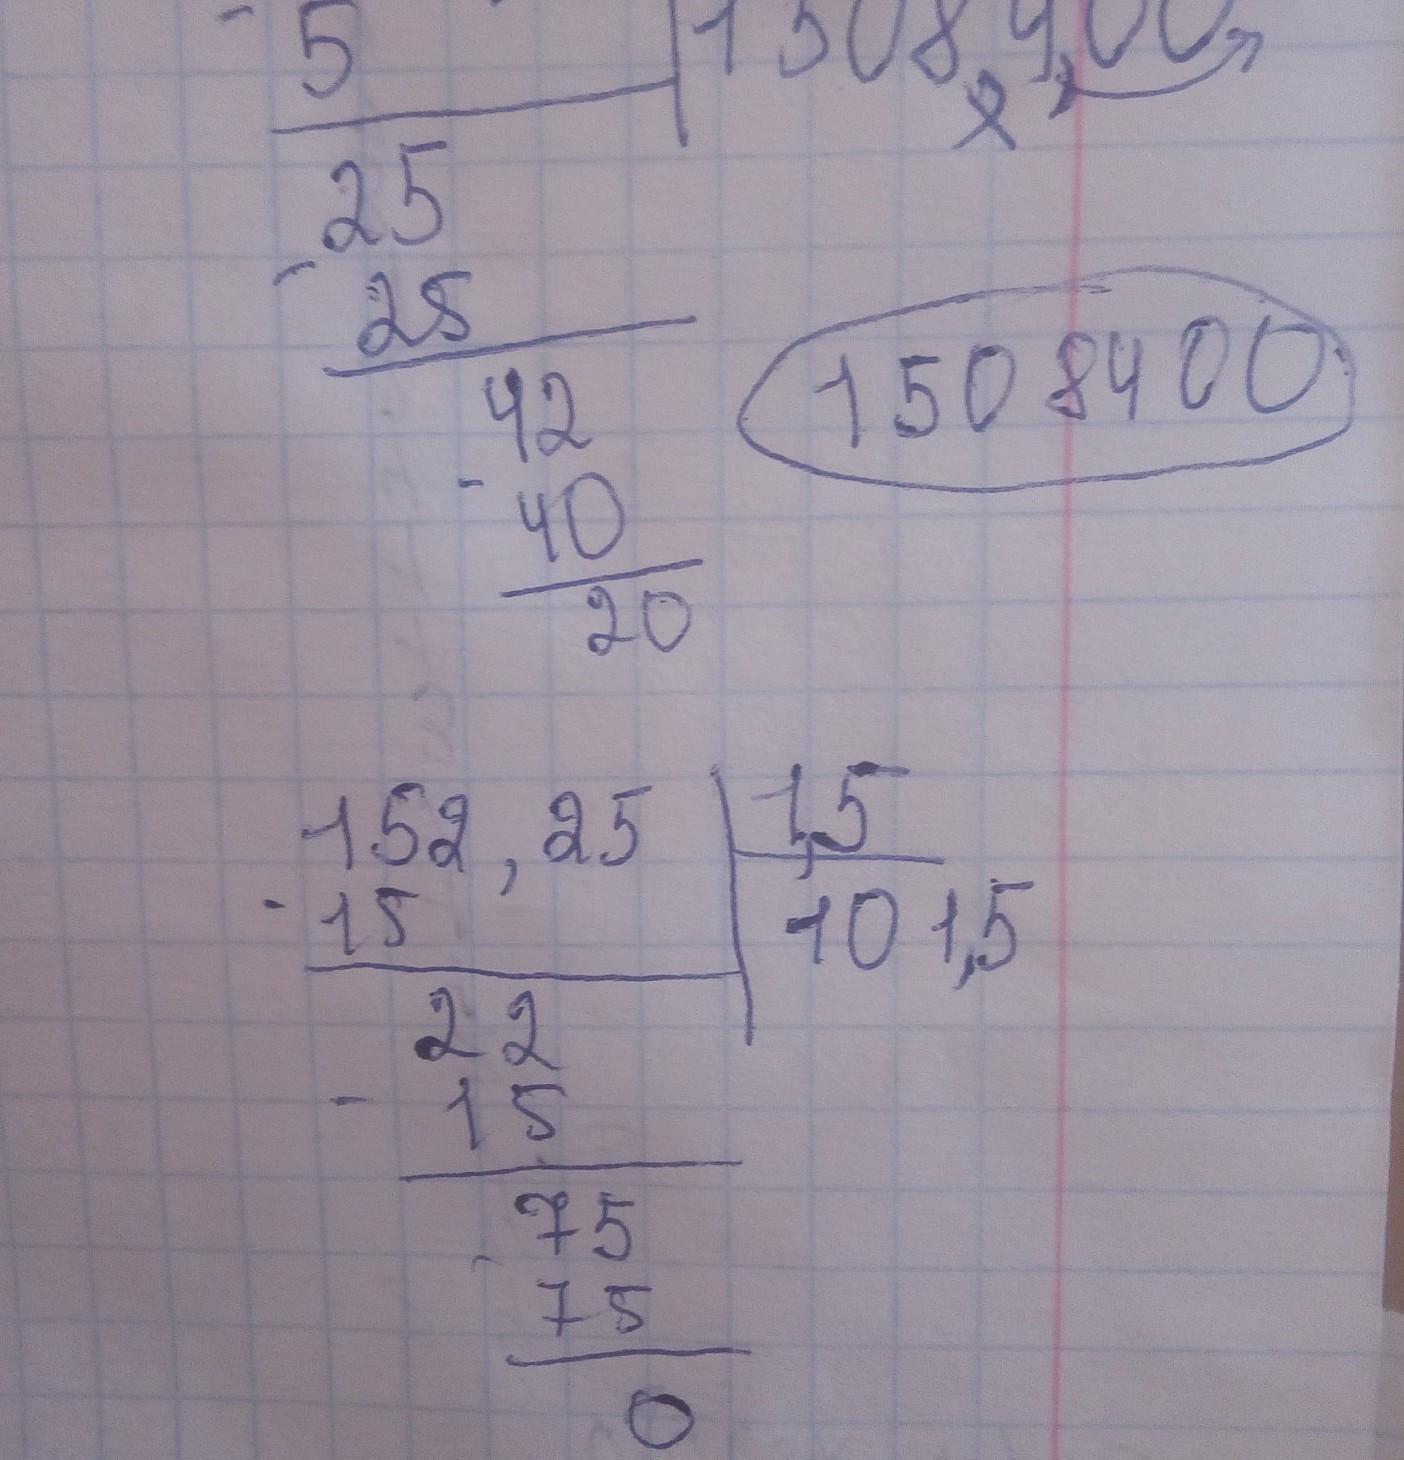 - 5 | 1508,4,00
25
- 25
42
- 40
20
1508400
152,25 | 1,5
- 15 | 101,5
22
- 15
75
- 75
0